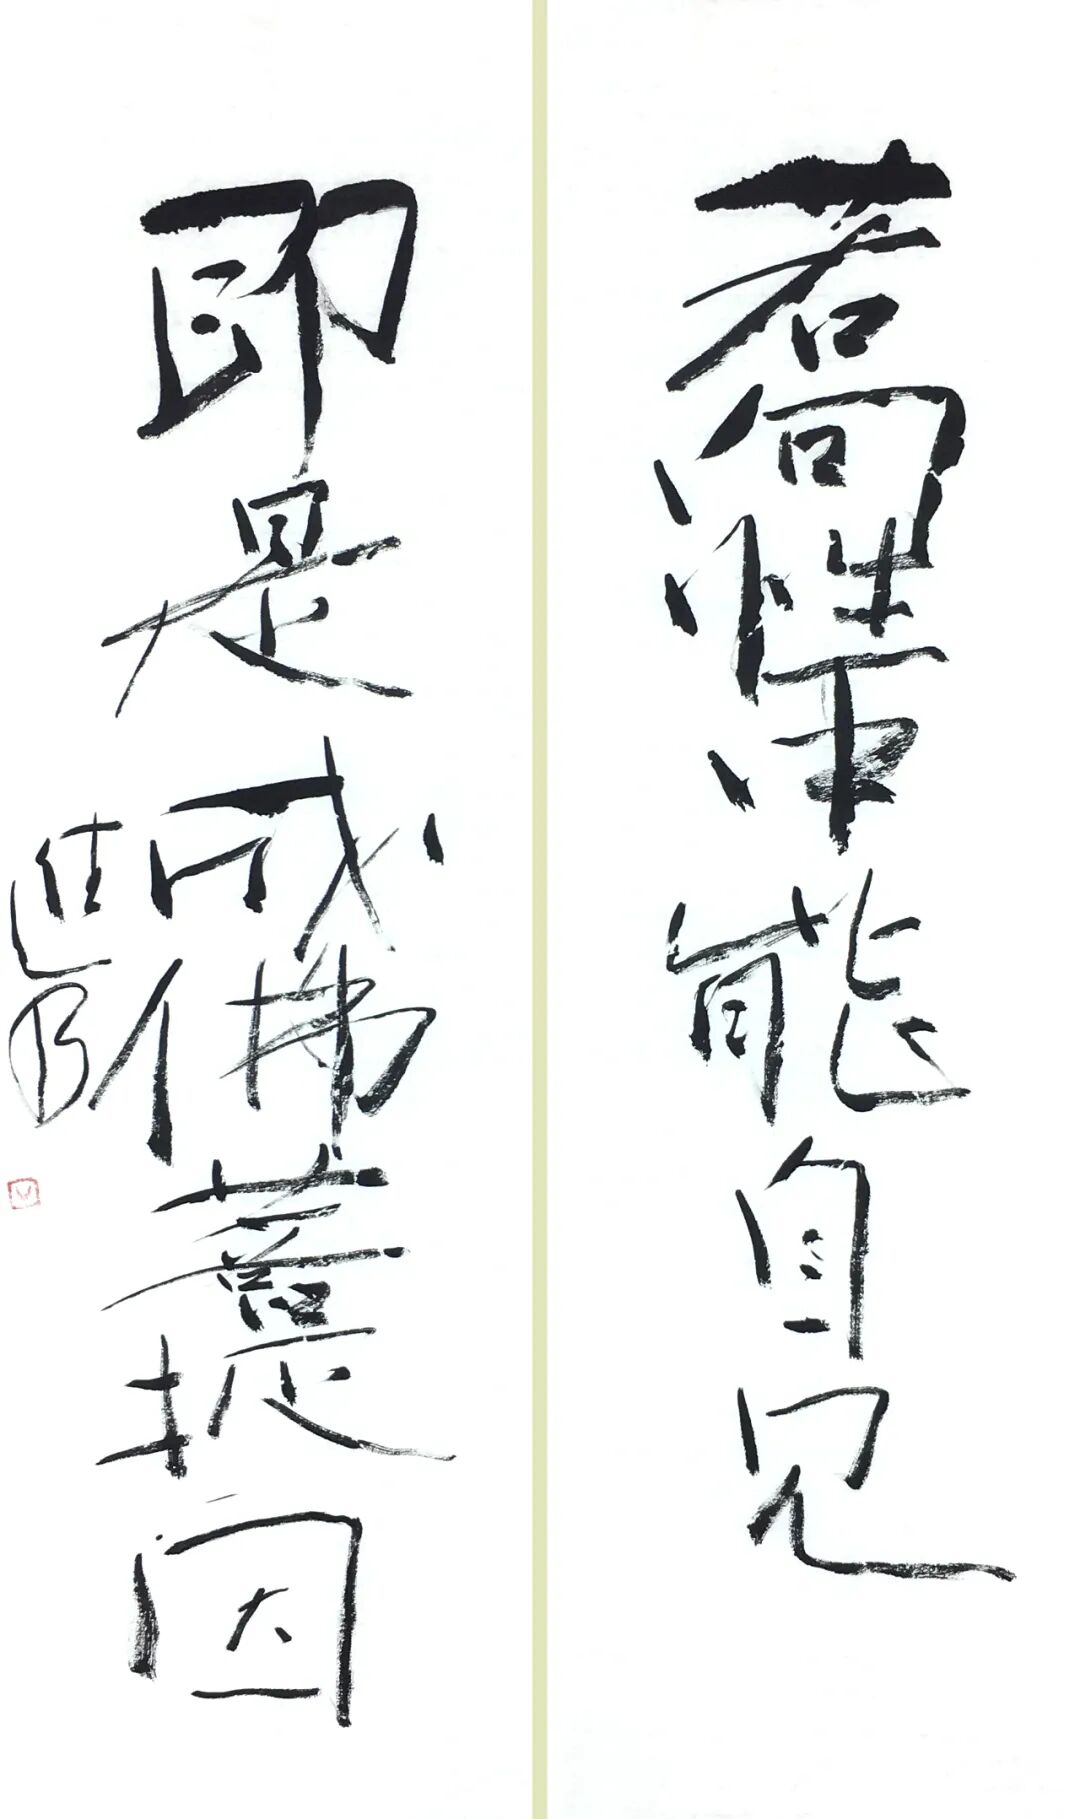 若向性中能自见
即是成佛菩提因